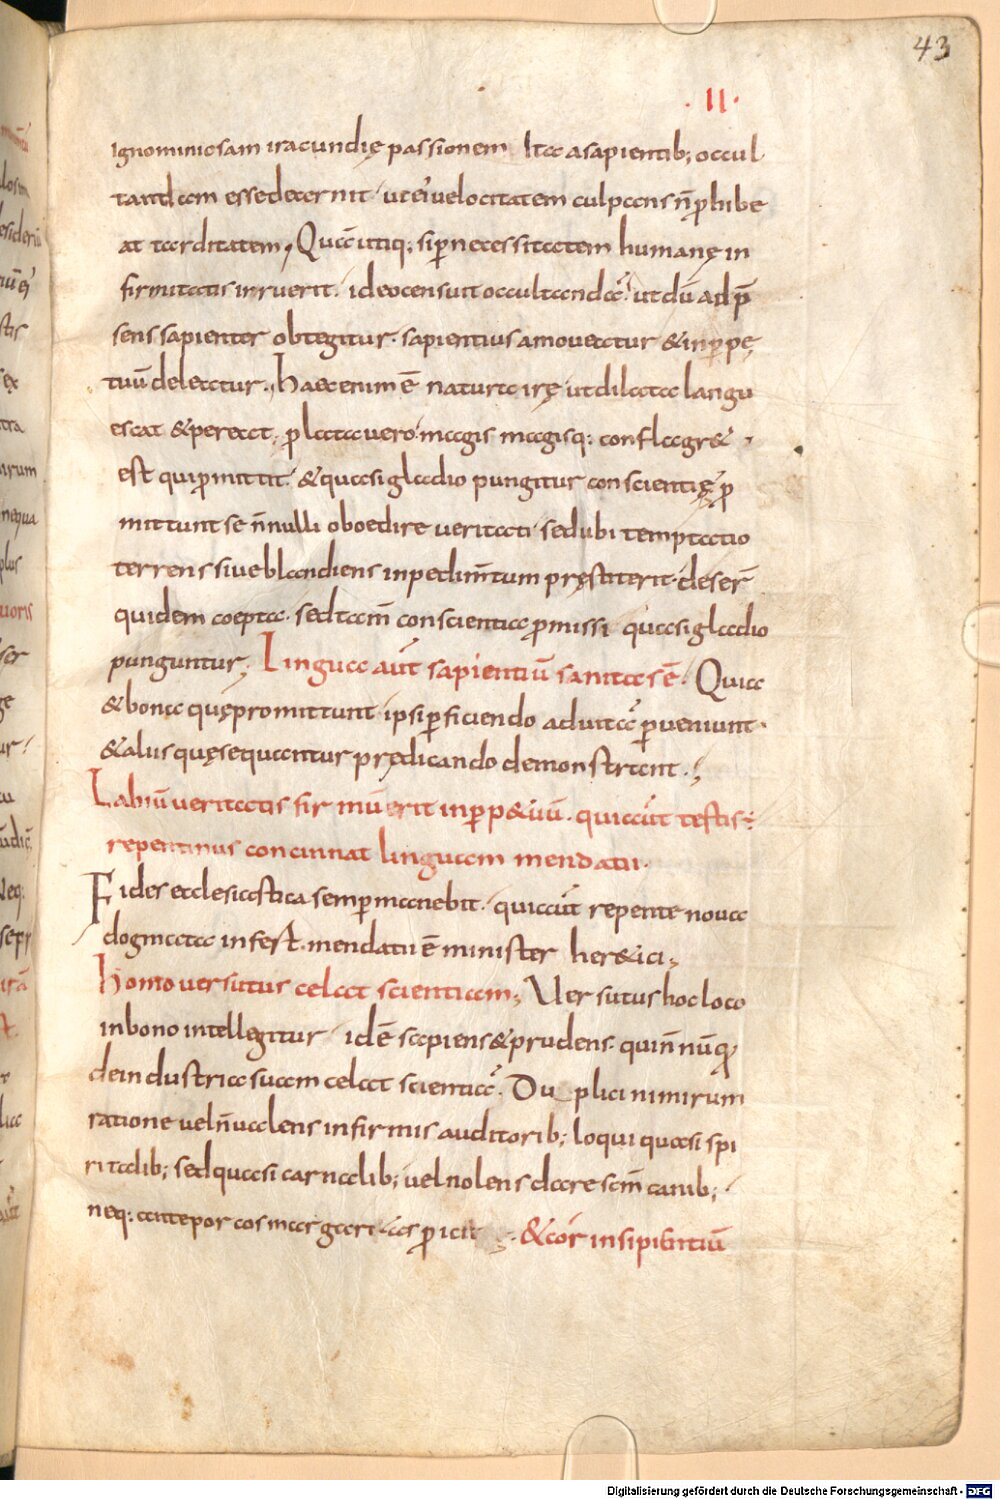 43
· II ·
ignominiosam iracundię passionem Ita a sapientib; occul
tandam esse decernit · ut ei velocitatem culpans n̄ ꝓhibe
at tarditatem; Quā utiq; si ꝑ necessitatem humanę in
firmitatis inruerit · ideo censuit occultandā · ut dū ad p̄
sens sapienter obtegitur · sapientius amoveatur & in ꝑpe
tuū deleatur; Haec enim ē natura irę ut dilata langu
escat & pereat, ꝓlata vero magis magisq; conflagr& ·
est qui ꝓmittit · & quasi gladio pungitur conscientię ꝓ
mittunt se n̄nulli oboedire veritati · sed ubi temptatio
terrens sive blandiens inpedim̄tum pręstiterit · deser̄
quidem coepta · sed tam̄ conscientia ꝓmissi quasi gladio
punguntur; Lingua aut̄ sapientiū sanitas ē · Quia
& bona quę promittunt ipsi ꝑficiendo ad vitā ꝑveniunt ·
& aliis quę sequantur prędicando demonstrant ·;
Labiū veritatis firmū erit in ꝑp&uū · qui aūt testis ÷
repentinus concinnat linguam mendatii ·
Fides ecclesiastica semꝑ manebit · qui aūt repente nova
dogmata infest · mendatii ē minister her&ici;
Homo versutus celat scientiam; Versutus hoc loco
in bono intellegitur · id ē sapiens & prudens · qui n̄nūq̄
de industria suam celat scientiā · Du plici nimirum
ratione vel n̄ valens infirmis auditorib; loqui quasi spi
ritalib; sed quasi carnalib; vel nolens dare scm̄ canib; ·
neq; ante porcos margaritas ꝓicit · & cor insipientiū
Digitalisierung gefördert durch die Deutsche Forschungsgemeinschaft - DFG